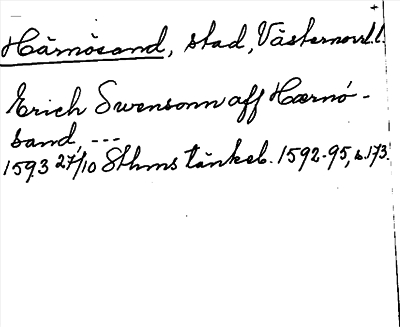 Härnösand, stad, Västernorrl.l.
Erich Swensonn aff Hærnö-
sand, ---
1593 27/10 Sthms tänkeb. 1592-95, s. 173.